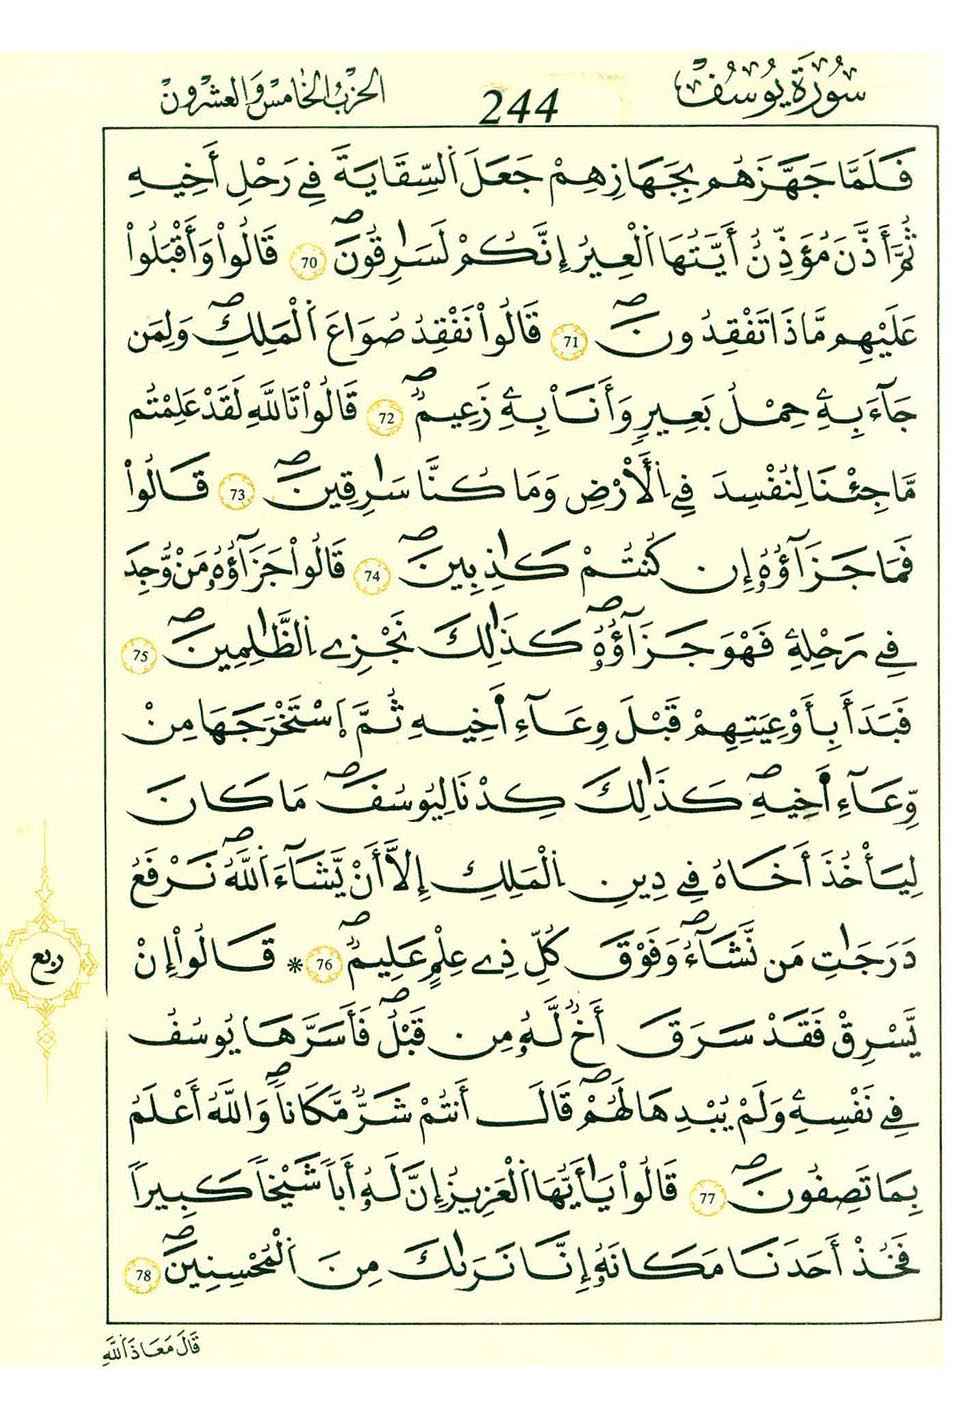 سُورَةُ يُوسُفْ 244 الحِزْبُ الخَامِسْ وَالعِشْرُونْ
فَلَمَّا جَهَّزَهُم بِجَهَازِهِمْ جَعَلَ اَ۬لسِّقَايَةَ فِے رَحْلِ أَخِيهِ
ثُمَّ أَذَّنَ مُؤَذِّنٌ أَيَّتُهَا اَ۬لْعِيرُ إِنَّكُمْ لَسَٰرِقُونَۖ 70 قَالُواْ وَأَقْبَلُواْ
عَلَيْهِم مَّاذَا تَفْقِدُونَۖ 71 قَالُواْ نَفْقِدُ صُوَاعَ اَ۬لْمَلِكِۖ وَلِمَن
جَآءَ بِهِۦ حِمْلُ بَعِيرٖ وَأَنَا۠ بِهِۦ زَعِيمٞۖ 72 قَالُواْ تَاللَّهِ لَقَدْ عَلِمْتُم
مَّا جِئْنَا لِنُفْسِدَ فِے اِ۬لَارْضِ وَمَا كُنَّا سَٰرِقِينَۖ 73 قَالُواْ
فَمَا جَزَٰٓؤُهُۥٓ إِن كُنتُمْ كَٰذِبِينَۖ 74 قَالُواْ جَزَٰٓؤُهُۥ مَنْ وُّجِدَ
فِے رَحْلِهِۦ فَهْوَ جَزَٰٓؤُهُۥۖ كَذَٰلِكَ نَجْزِے اِ۬لظَّٰلِمِينَۖ 75
فَبَدَأَ بِأَوْعِيَتِهِمْ قَبْلَ وِعَآءِ اَ۬خِيهِ ثُمَّ اَ۪سْتَخْرَجَهَا مِنْ
وِّعَآءِ اَ۬خِيهِۖ كَذَٰلِكَ كِدْنَا لِيُوسُفَۖ مَا كَانَ
لِيَأْخُذَ أَخَاهُ فِے دِينِ اِ۬لْمَلِكِ إِلَّا أَنْ يَّشَآءَ اَ۬للَّهُۖ نَرْفَعُ
دَرَجَٰتِ مَن نَّشَآءُۖ وَفَوْقَ كُلِّ ذِے عِلْمٍ عَلِيمٞۖ 76 * قَالُواْ إِنْ
يَّسْرِقْ فَقَدْ سَرَقَ أَخٞ لَّهُۥ مِن قَبْلُۖ فَأَسَرَّهَا يُوسُفُ
فِے نَفْسِهِۦ وَلَمْ يُبْدِهَا لَهُمْۖ قَالَ أَنتُمْ شَرّٞ مَّكَاناٗۖ وَاللَّهُ أَعْلَمُ
بِمَا تَصِفُونَۖ 77 قَالُواْ يَٰأَيُّهَا اَ۬لْعَزِيزُ إِنَّ لَهُۥٓ أَباٗ شَيْخاٗ كَبِيراٗ
فَخُذْ أَحَدَنَا مَكَانَهُۥٓ إِنَّا نَرَىٰكَ مِنَ اَ۬لْمُحْسِنِينَۖ 78
ربع
قَالَ مَعَاذَ اَ۬للَّهِ